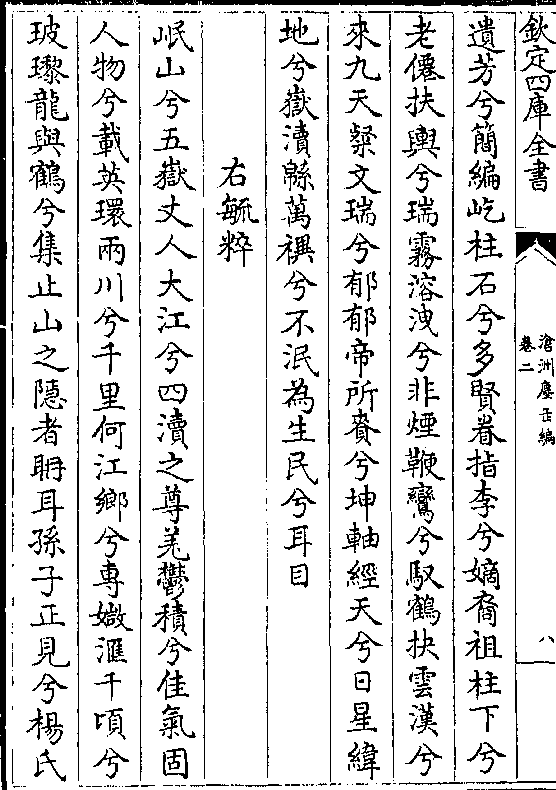 欽定四庫全書
滄洲塵缶編
卷二
八
遺芳兮簡編屹柱石兮多賢眷指李兮嫡裔祖柱下兮
老僊扶輿兮瑞霧溶洩兮非煙鞭鸞兮馭鶴抉雲漢兮
來九天粲文瑞兮郁郁帝所賚兮坤軸經天兮日星緯
地兮嶽瀆緜萬禩兮不泯為生民兮耳目
右毓粹
岷山兮五嶽丈人大江兮四瀆之尊羌鬱積兮佳氣固
人物兮載英環兩川兮千里何江鄉兮專媺滙千頃兮
玻瓈龍與鶴兮集止山之隱者耼耳孫子正見兮楊氏